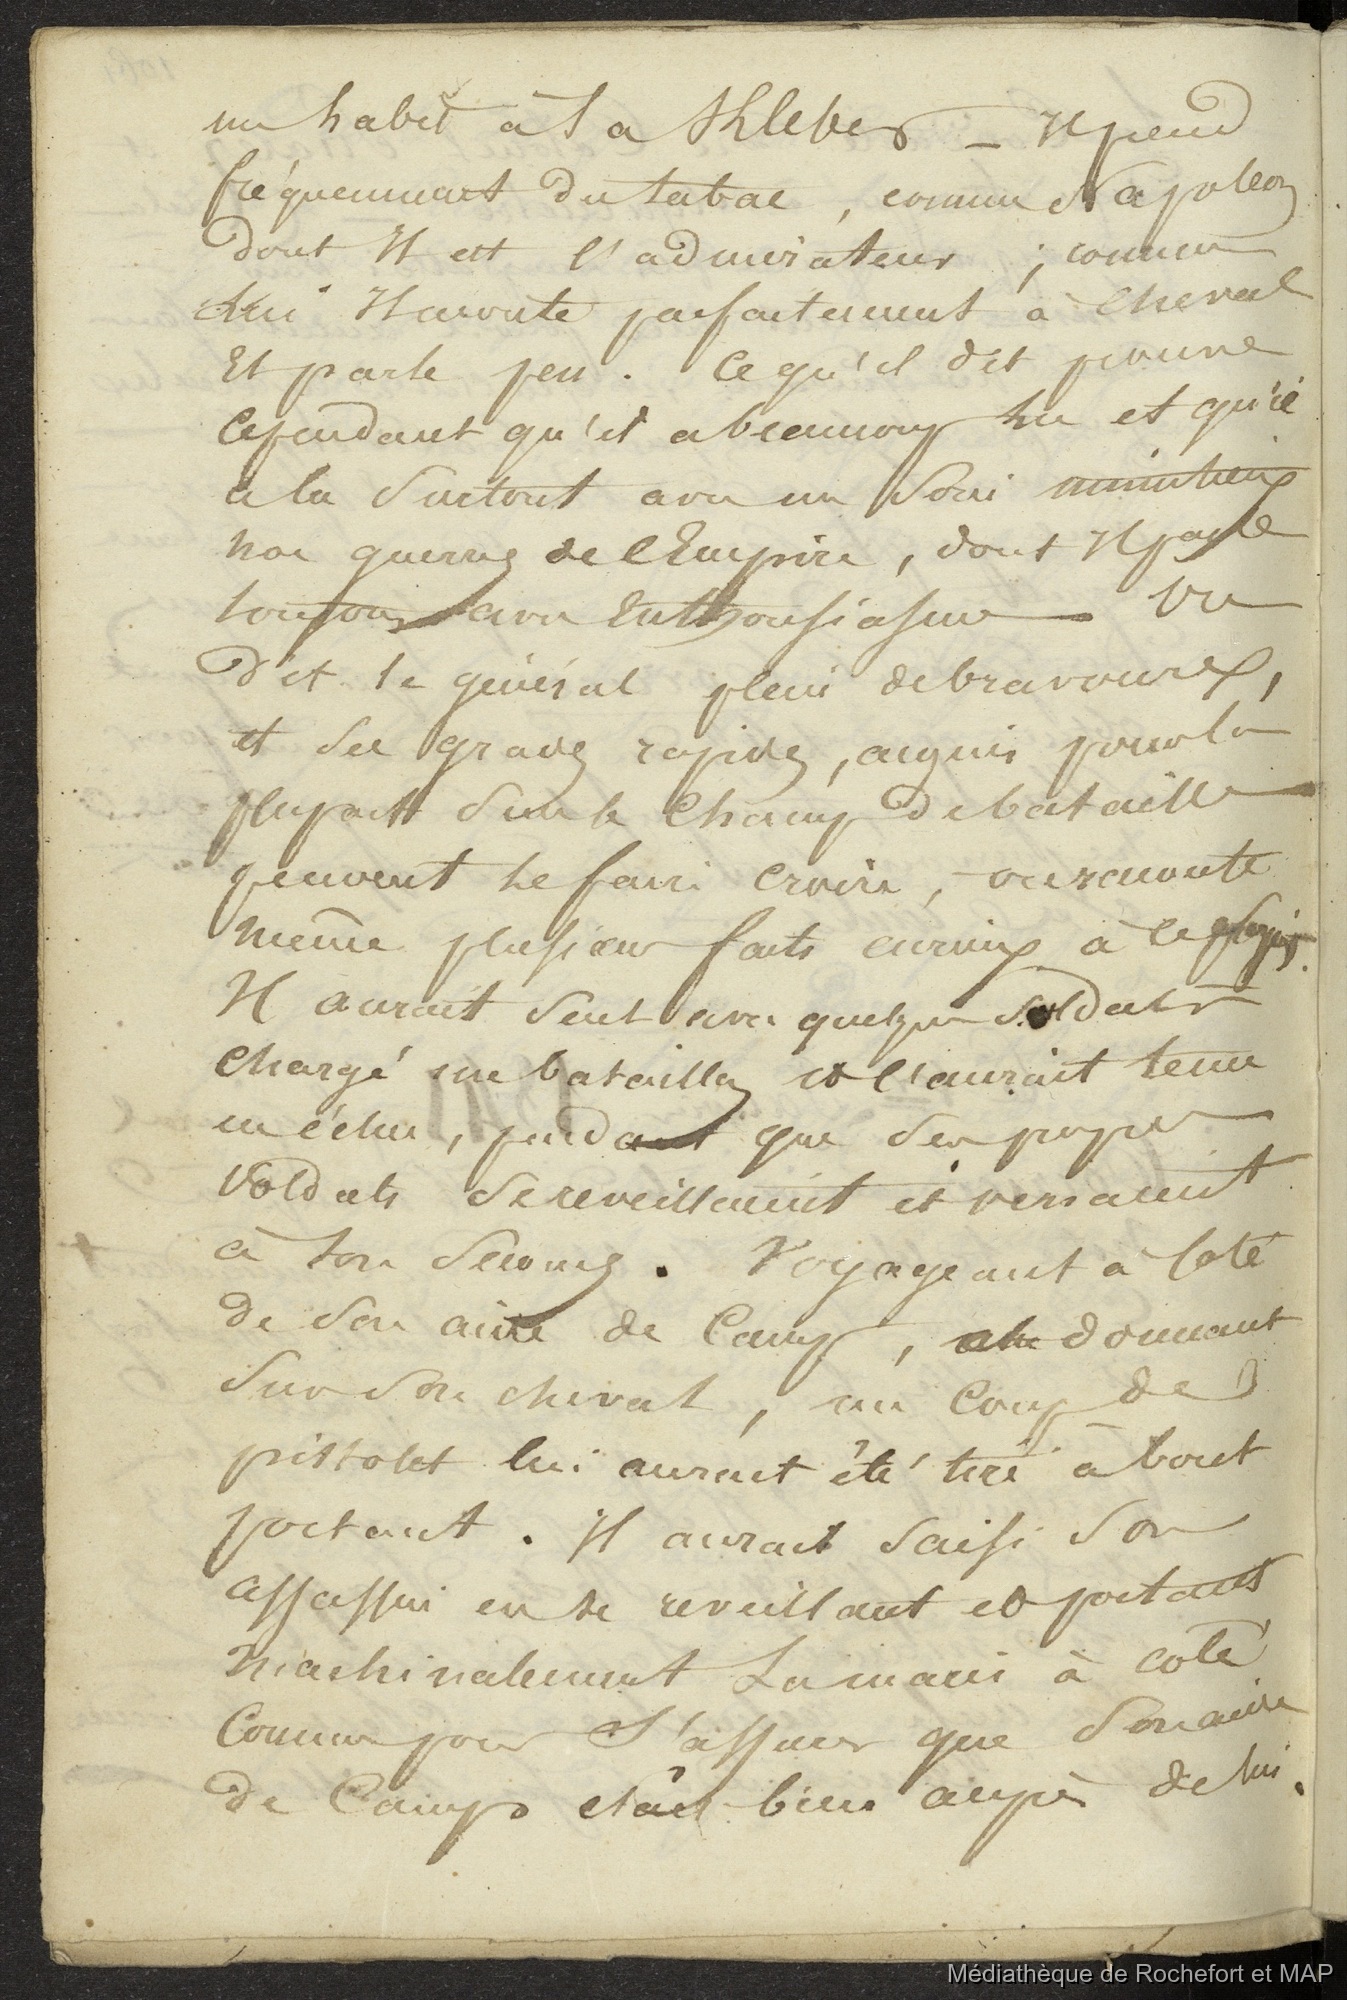 un habit à la Kleber _ Il prend
fréquemment du tabac, comme Napoleon
dont Il est l'admirateur ; comme
lui Il monte parfaitement à cheval
Et parle peu. Ce qu'il dit prouve
Cependant qu'il a beaucoup lu et qu'il
a lu surtout avec un soin minutieux
nos guerres de l'Empire, dont Il parle
toujours avec Enthousiasme _ On
dit le général plein de bravoure,
et ses grades rapides, acquis pour la
plupart sur le Champ de bataille
peuvent le faire croire, on raconte
même plusieurs faits curieux à ce sujet.
Il aurait seul avec quelques soldats
Chargé un bataillon et l'aurait tenu
en échec, pendant que ses propres
soldats se reveillaient et venaient
à son secours. Voyageant à Coté
de son aide de Camp, dormant
sur son cheval, un Coup de
pistolet lui aurait été tiré à bout
portant. Il aurait saisi son
assassin en se reveillant et portant
machinalement La main à coté
Comme pour s'assurer que son aide
de Camp etait bien auprès de lui.
Médiathèque de Rochefort et MAP